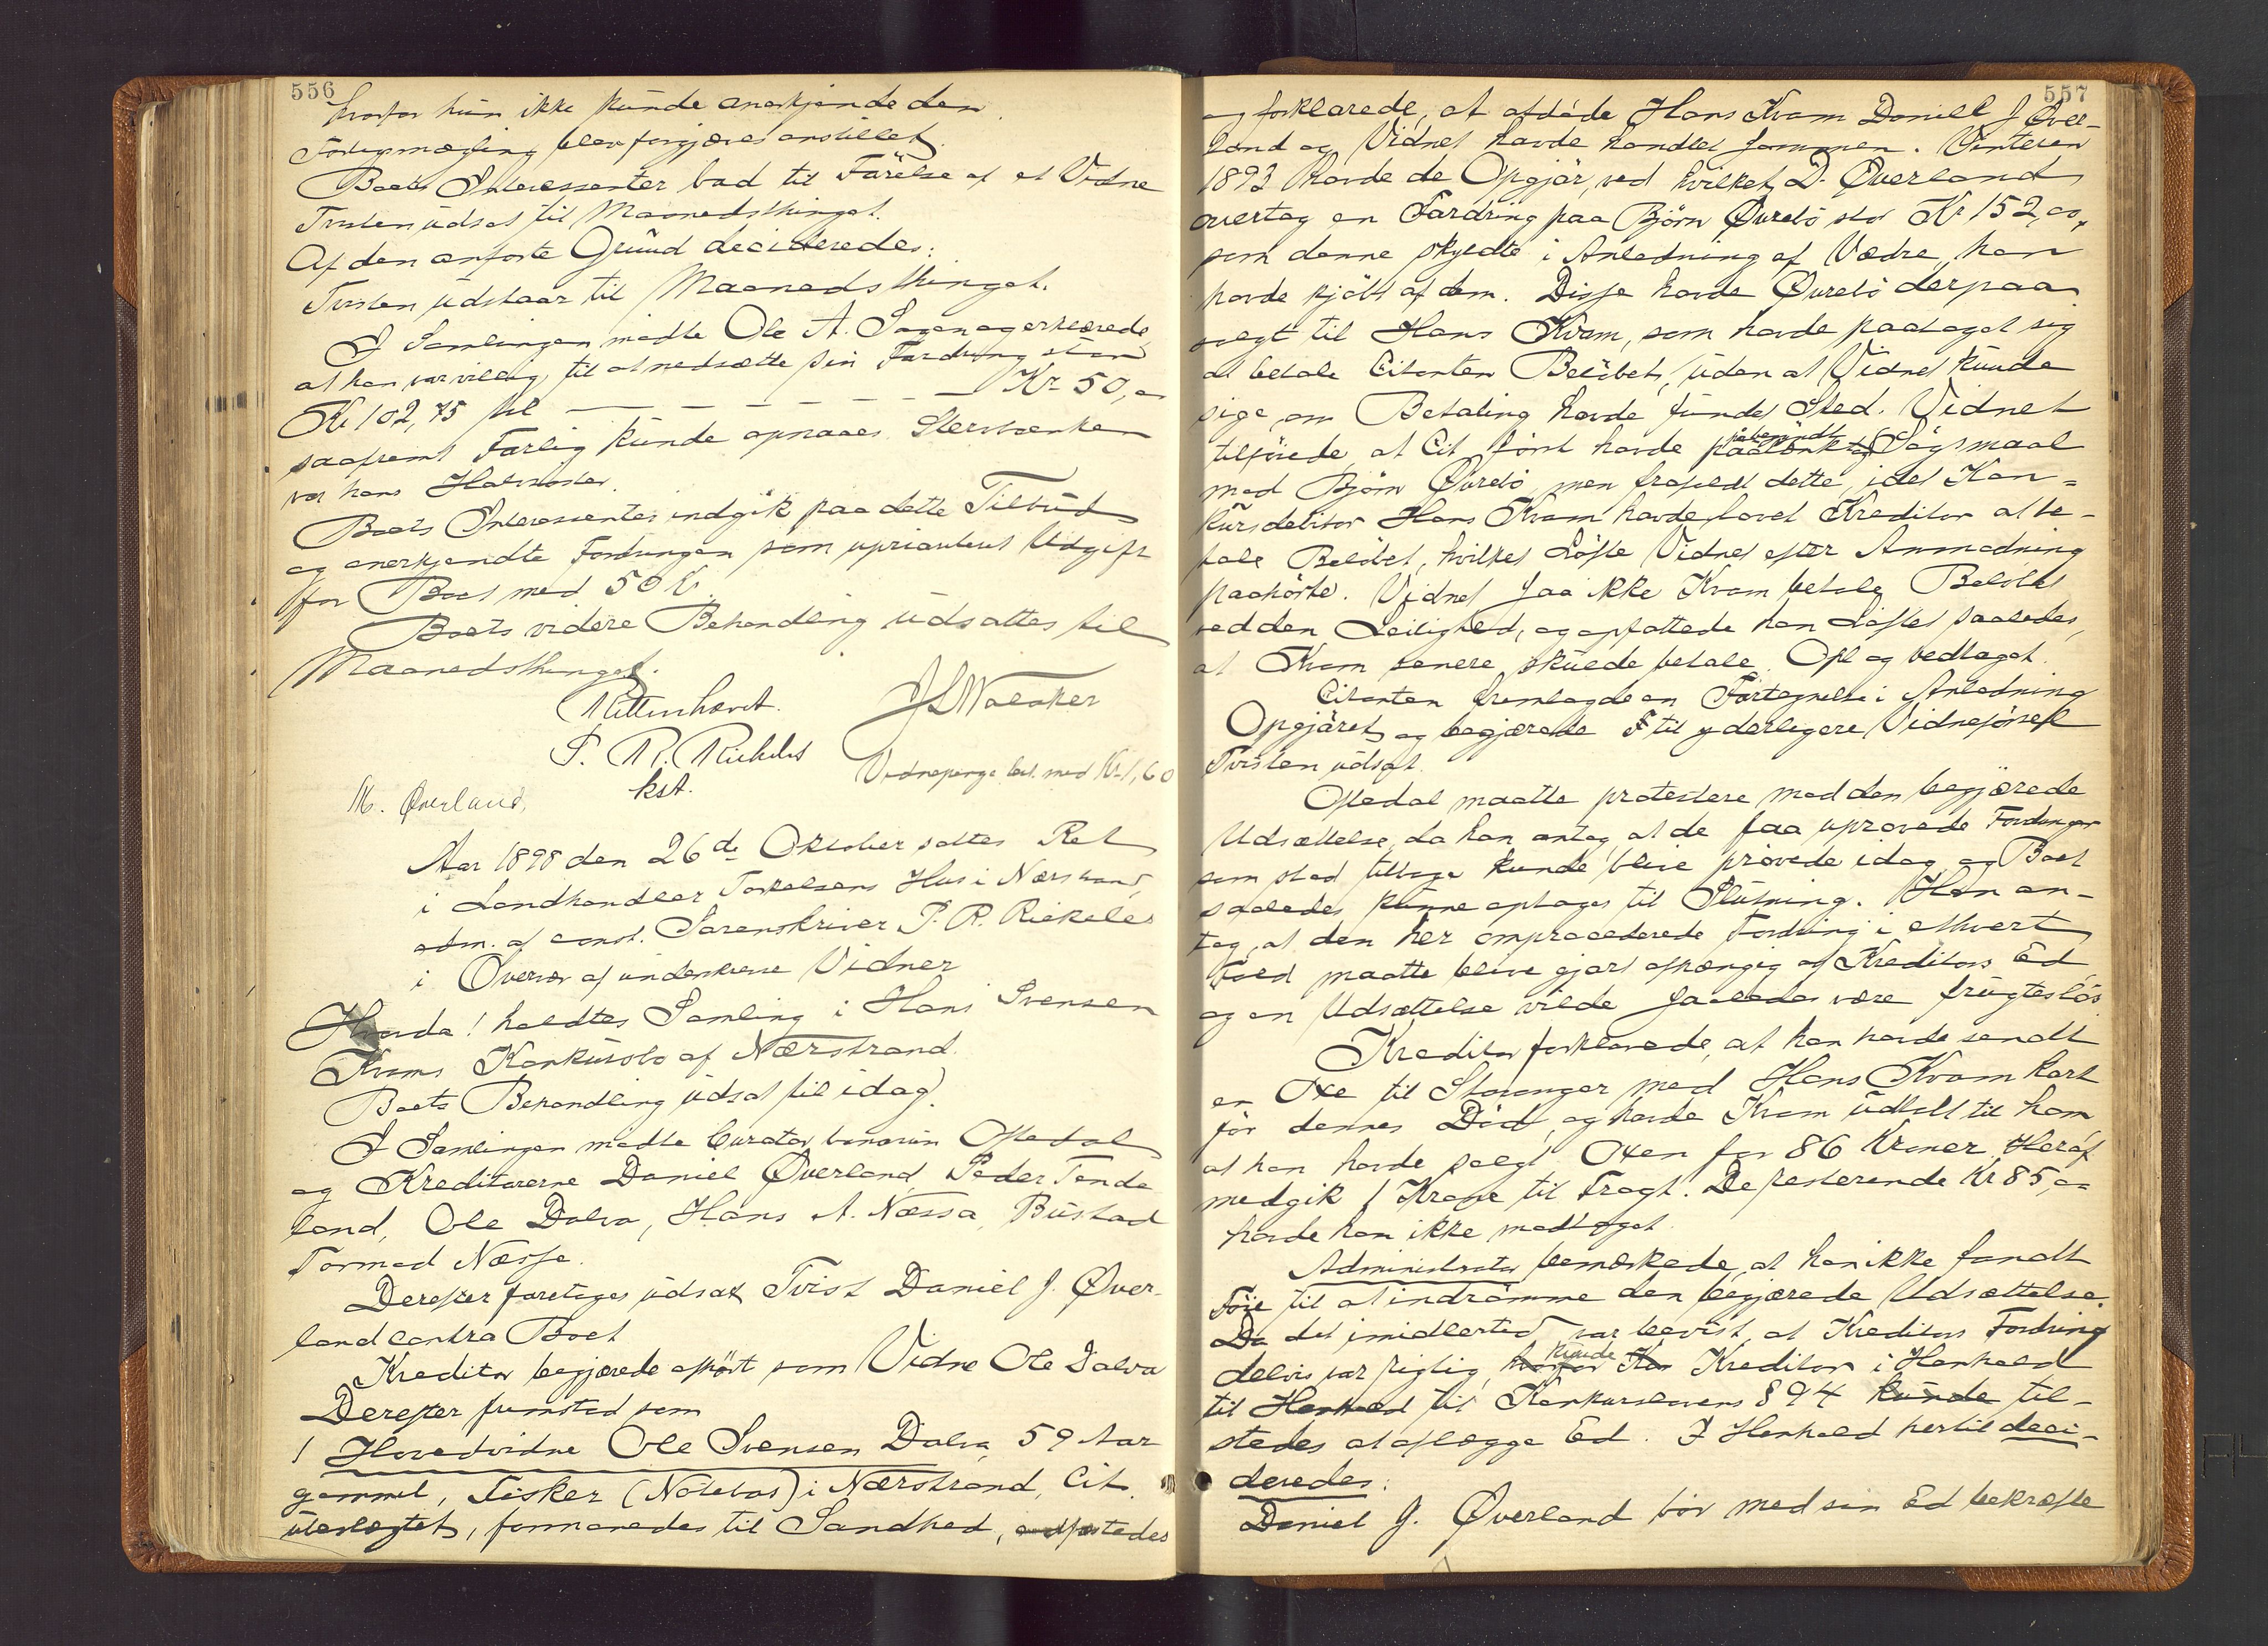 556
hvorfor hun ikke kunde anerkjende den.
Forligsmægling blev forgjæves anstillet.
Boets Interessenter bad til Førelse af et Vidne
Tvisten udsat til Maanedsthinget.
Af den anførte Grund decideredes:
Tvisten udstaar til Maanedsthinget.
I Samlingen mødte Ole A. Sagen og erklærede
at han var villig til at nedsætte sin Fordring stor
Kr 102,75 til — — — — — — Kr 50,00
saafremt Forlig kunde opnaaes. Stervboenken
var hans Halvsøster.
Boets Interessenter indgik paa dette Tilbud
og anerkjendte Fordringen som uprioritert Udgift
for Boet med 50 Kr.
Boets videre Behandling udsattes til
Maanedsthinget.
Retten hævet.
P. R. Rickeles
kst.
J S Waloker
Vidnepenge bet. med Kr 1,60
M. Øverland,
Aar 1898 den 26de Oktober sattes Ret
i Landhandler Torkelsens Hus i Nærstrand,
adm. af const. Sorenskriver P. R. Rickeles
i Overvær af underskrevne Vidner
Hvorda! holdtes Samling i Hans Svensen
Kvams Konkursbo af Nærstrand.
Boets Behandling udsat til idag.
I Samlingen mødte Curator bonorum Oftedal
og Kreditorerne Daniel Øverland, Peder Tende
land, Ole Dalva, Hans A. Næssa, Bustad
Tormod Næsse.
Derefter foretoges udsat Tvist Daniel J. Øver-
land contra Boet
Kreditor begjærede afhørt som Vidne Ole Dalva
Derefter fremstod som
1 Hovedvidne Ole Svensen Dalva, 59 Aar
gammel, Fisker (Notebas) i Nærstrand, Cit.
ubeslægtet, formanedes til Sandhed, edfæstedes
557
og forklarede, at afdøde Hans Kvam Daniel J Øver-
land og Vidnet havde handlet sammen. Vinteren
1893 havde de Opgjør, ved hvilket D. Øverland
overtog en Fordring paa Bjørn Øvrebø stor Kr 152,00,
som denne skyldte i Anledning af Vædre, han
havde kjøbt af dem. Disse havde Øvrebø derpaa
solgt til Hans Kvam, som havde paataget sig
at betale Citanten Beløbet, uden at Vidnet kunde
sige, om Betaling havde fundet Sted. Vidnet
tilføiede, at Cit. først havde paabegyndt Søgsmaal
mod Bjørn Øvrebø, men frafaldt dette, idet Kon-
kursdebitor Hans Kvam havde lovet Kreditor at be-
tale Beløbet, hvilket Løfte Vidnet efter Anmodning
paahørte. Vidnet saa ikke Kvam betale Beløbet
ved den Leilighed, og opfattede han Løftet saaledes,
at Kvam senere skulde betale. Opl og vedtaget.
Citanten fremlagde en Fortegnelse i Anledning
Opgjøret og begjærede til yderligere Vidneførsel
Tvisten udsat.
Oftedal maatte protestere mod den begjærede
Udsættelse, da han antog, at de faa uprøvede Fordringer
som stod tilbage kunde blive prøvede idag og Boet
saaledes kunne optages til Slutning. Han an-
tog, at den her omprocederede Fordring i ethvert
Fald maatte blive gjort afhængig af Kreditors Ed
og en Udsættelse vilde saaledes være frugtesløs.
Kreditor forklarede, at han havde sendt
en Oxe til Stavanger med Hans Kvam kort
før dennes Død, og havde Kvam udtalt til ham,
at han havde solgt Oxen for 86 Kroner. Heraf
medgik 1 Krone til Fragt. De resterende Kr 85,00
havde han ikke modtaget.
Administrator bemærkede, at han ikke fandt
Føie til at indrømme den begjærede Udsættelse.
Da det imidlertid var bevist, at Kreditors Fordring
delvis var rigtig, kunde Kreditor i Henhold
til Henhold til Konkurslovens § 94 kunde til-
stedes at aflægge Ed. I Henhold hertil deci-
deredes:
Daniel J. Øverland bør med sin Ed bekræfte